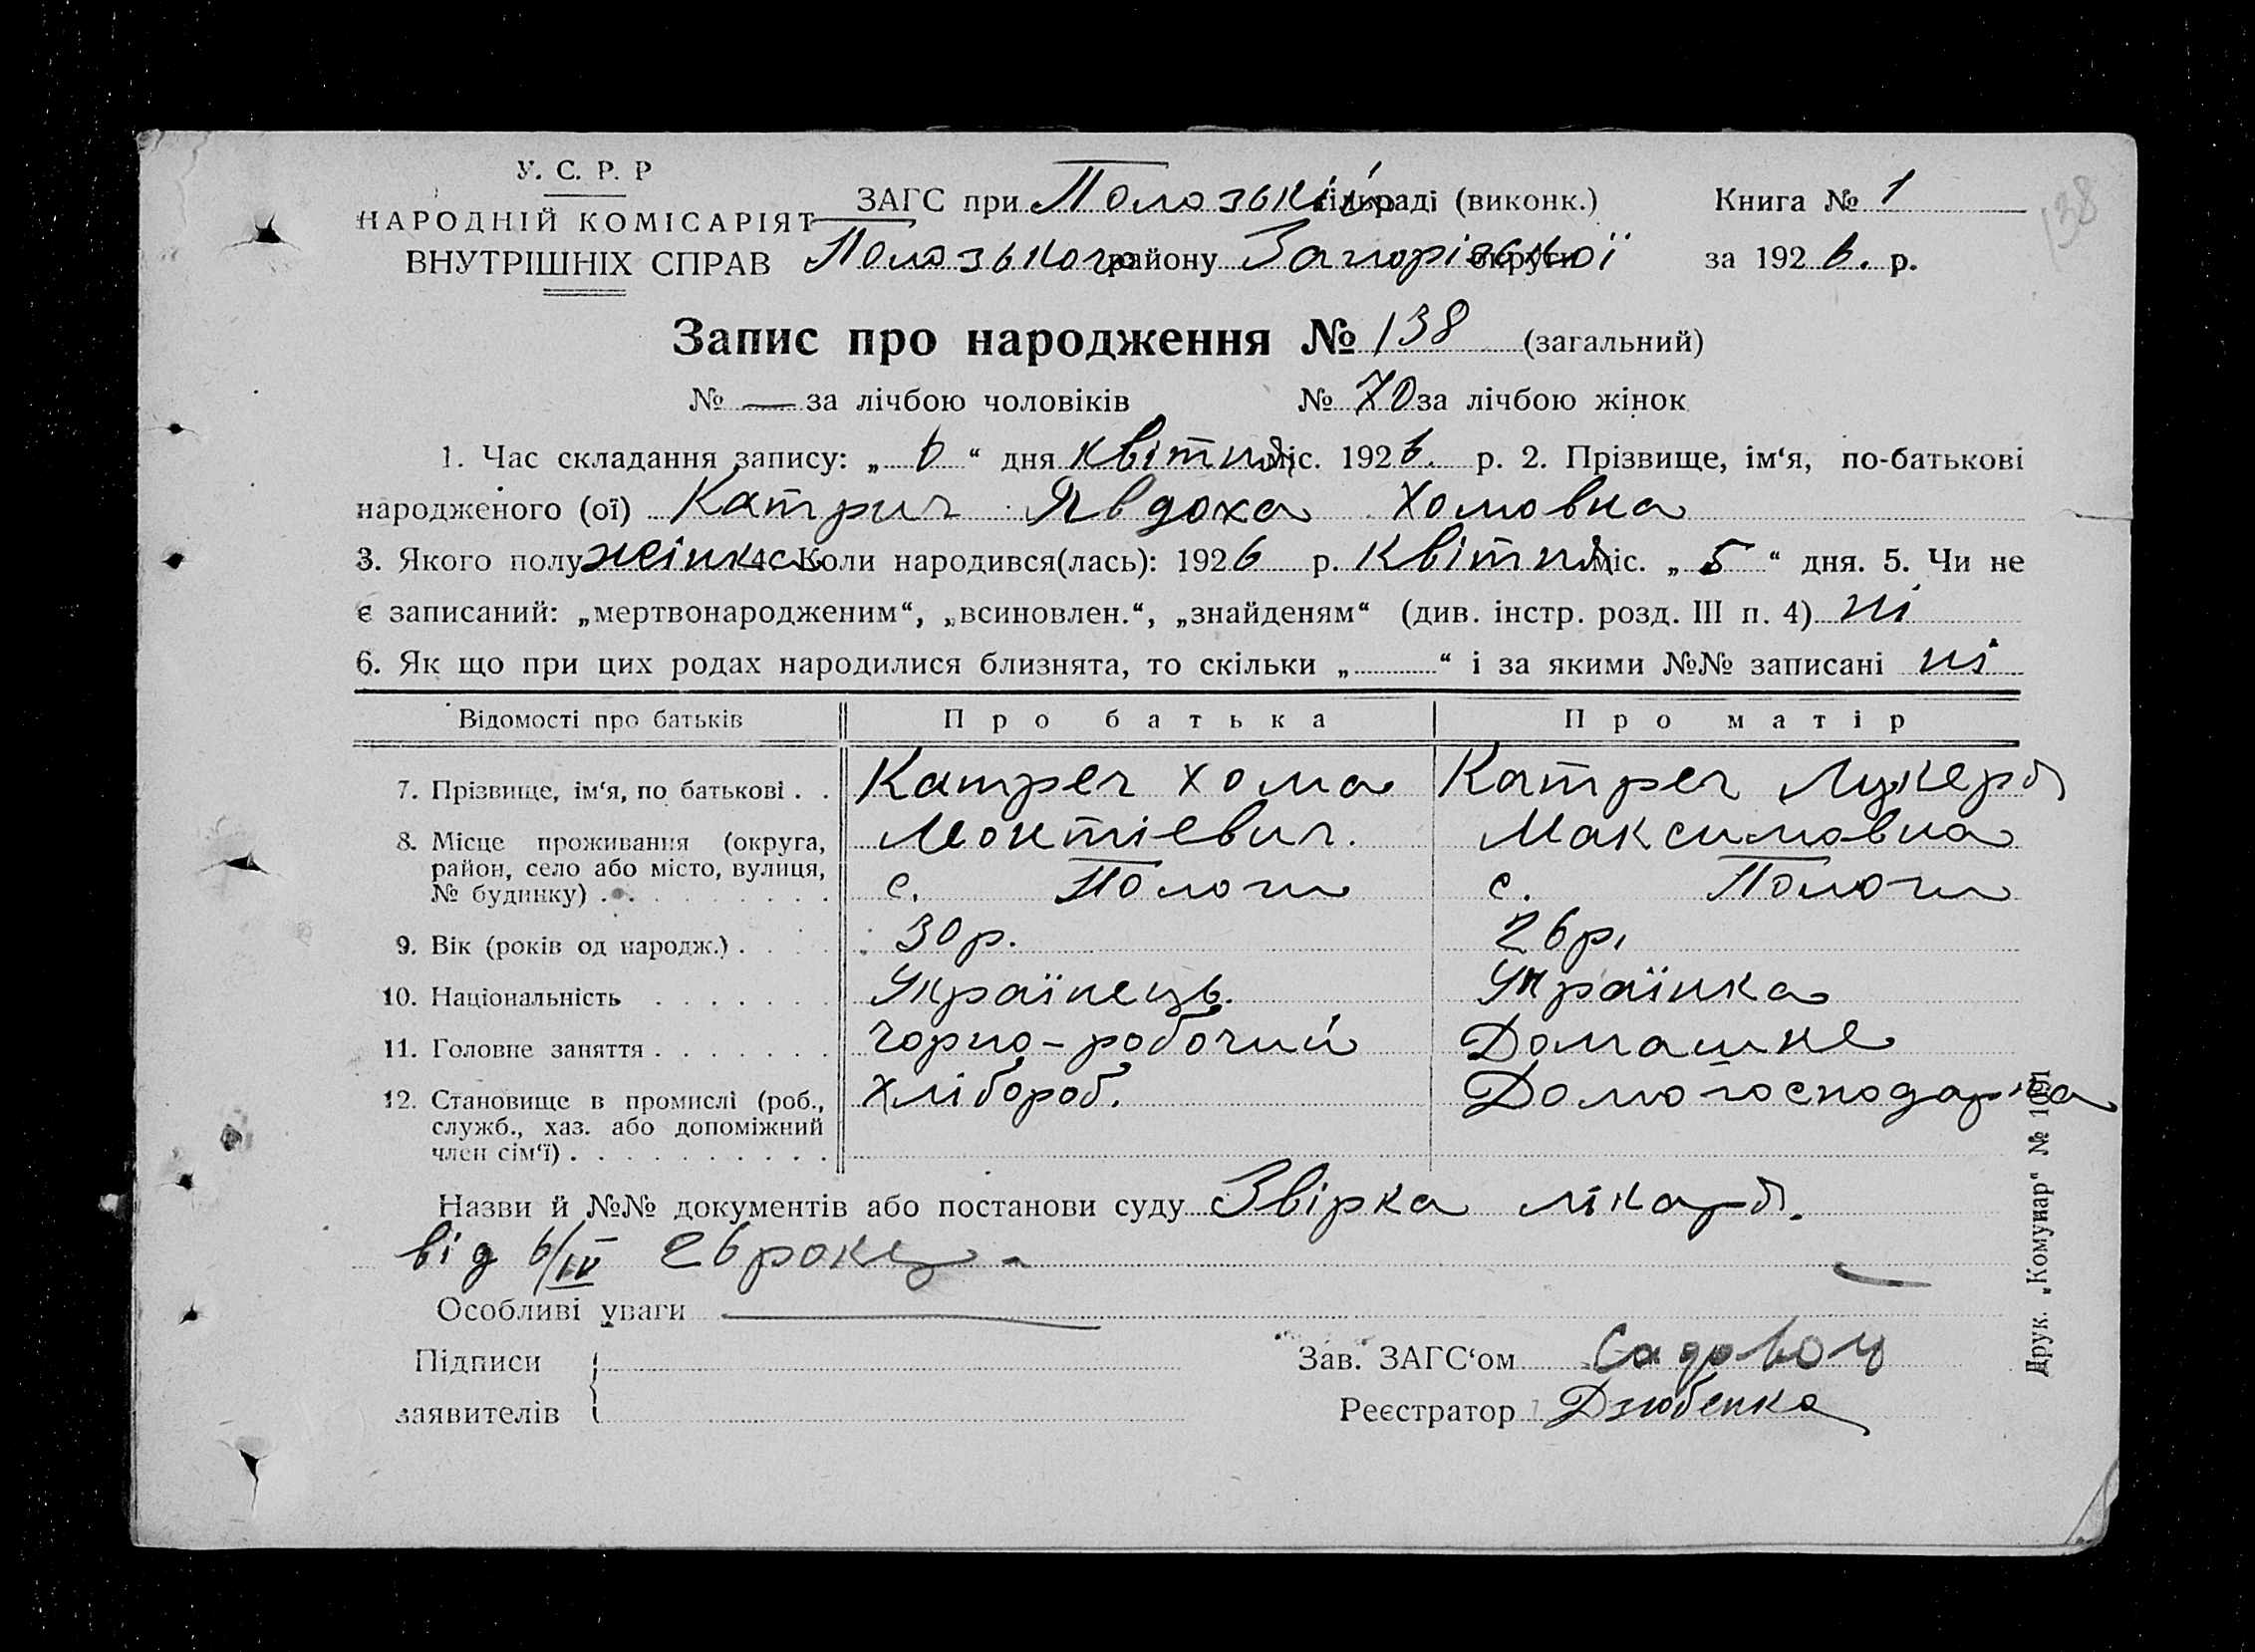 У. С. Р. Р
НАРОДНІЙ КОМІСАРІЯТ
ВНУТРІШНІХ СПРАВ
ЗАГС при Полозькій сільраді (виконк.)
Книга № 1
138
Полозького району Запорізької округи
за 1926. р.
Запис про народження № 138 (загальний)
№ — за лічбою чоловіків № 70 за лічбою жінок
1. Час складання запису: „ 6 “ дня квітня міс. 1926. р. 2. Прізвище, ім‘я, по-батькові
народженого (ої) Катрич Явдоха Хомовна
3. Якого полу жінка 4. Коли народився(лась): 1926 р. квітня міс. „ 5 “ дня. 5. Чи не
є записаний: „мертвонародженим“, „всиновлен.“, „знайденям“ (див. інстр. розд. III п. 4) ні
6. Як що при цих родах народилися близнята, то скільки „ “ і за якими №№ записані ні
Відомості про батьків Про батька Про матір
7. Прізвище, ім‘я, по батькові . . Катреч Хома Катреч Лукеря
8. Місце проживання (округа, Леонтіевич. Максимовна
район, село або місто, вулиця,
№ будинку) . с. Пологи с. Пологи
9. Вік (років од народж.) . 30 р. 26 р.
10. Національність Українець. Українка
11. Головне заняття Чорно-робочий Домашне
12. Становище в промислі (роб., Хлібороб. Домогосподарка
служб., хаз. або допоміжний
член сім‘ї)
Назви й №№ документів або постанови суду Звірка лікаря.
від 6/IV 26 року -
Особливі уваги
Підписи
заявителів
Зав. ЗАГС‘ом
Реєстратор Дзюбенко
Друк. „Комунар“ № 1091